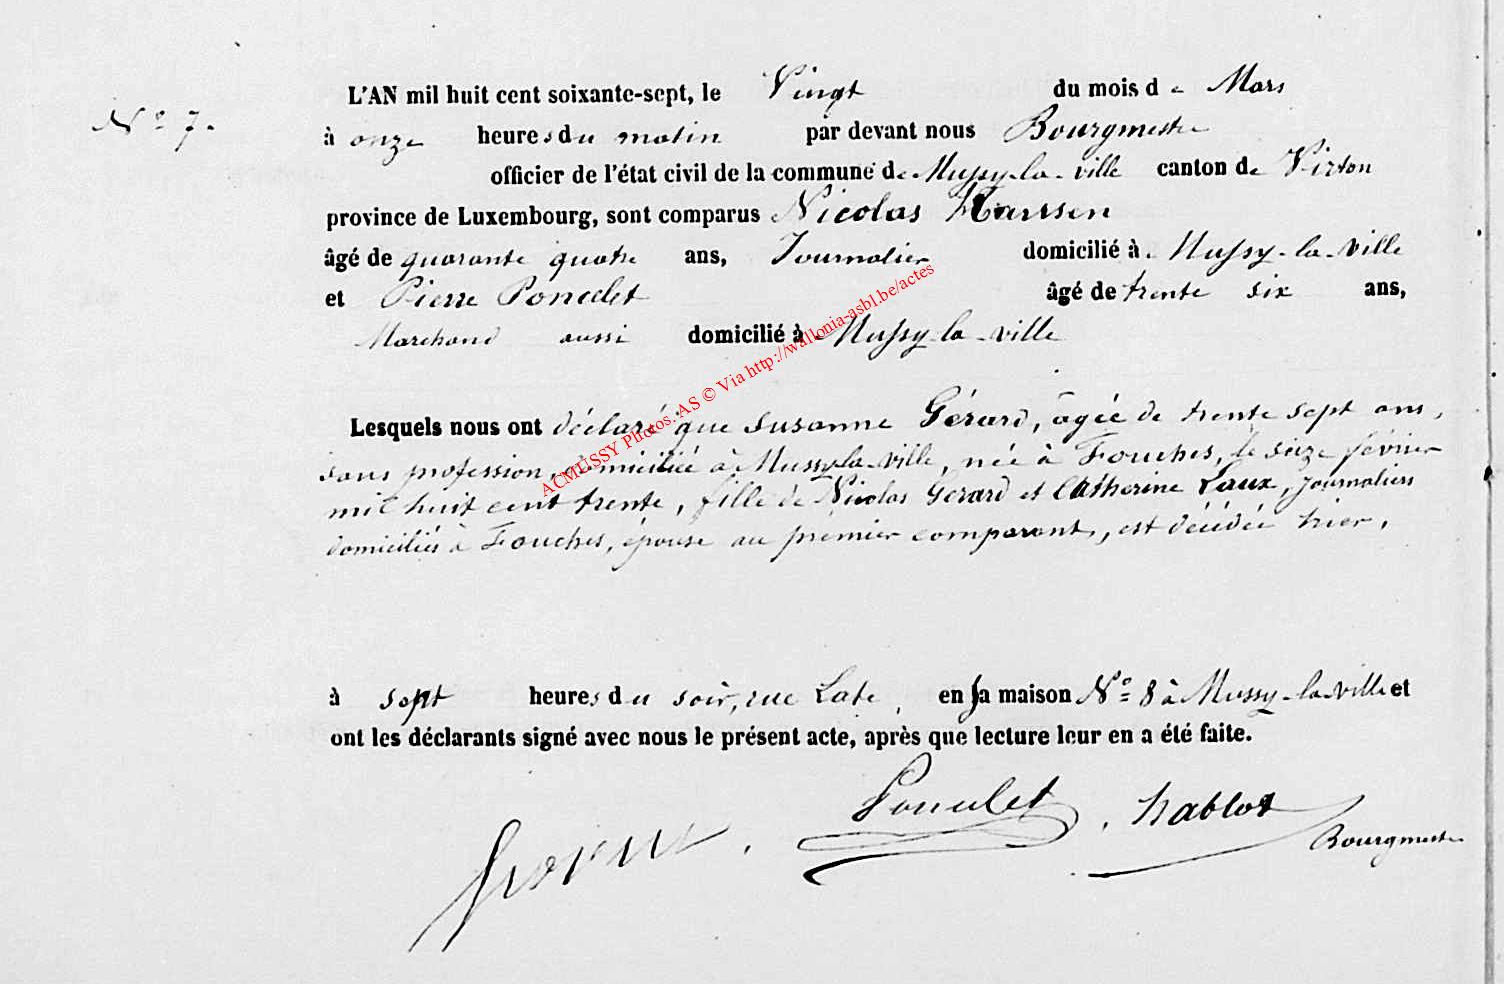 N° 7.
L'AN mil huit cent soixante-sept, le Vingt du mois de Mars
à onze heures du matin par devant nous Bourgmestre
officier de l'état civil de la commune de Mussy-la-ville canton de Virton
province de Luxembourg, sont comparus Nicolas
âgé de quarante quatre ans, Journalier domicilié à Mussy-la-ville
et Pierre Poncelet âgé de trente six ans,
Marchand aussi domicilié à Mussy-la-ville
ACMUSSY Photos: AS © Via http://wallonia-asbl.be/actes
Lesquels nous ont déclaré que Susanne Gérard, âgée de trente sept ans,
sans profession, domiciliée à Mussy-la-ville, née à Fouches, le seize février
mil huit cent trente, fille de Nicolas Gérard et Catherine Laux, journaliers
domiciliés à Fouches, épouse au premier comparant, est décédée hier,
à sept heures du soir, rue Late, en sa maison N° 8 à Mussy-la-ville et
ont les déclarants signé avec nous le présent acte, après que lecture leur en a été faite.
Poncelet . hablot
Bourgmestre